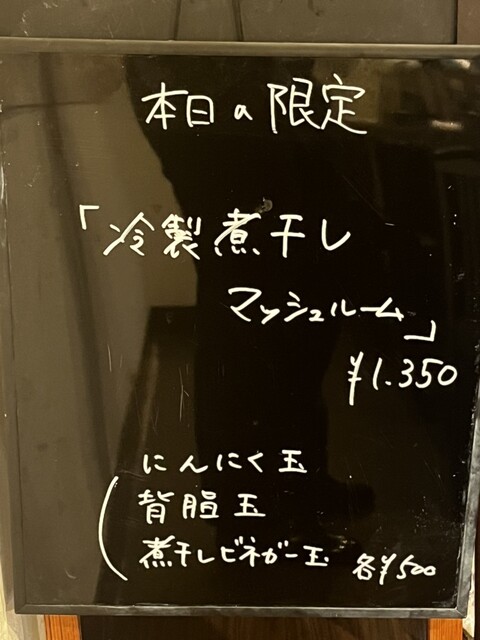 本日の限定
「冷製煮干し
マッシュルーム」
¥1.350
にんにく玉
背脂玉
煮干しビネガー玉 各¥500